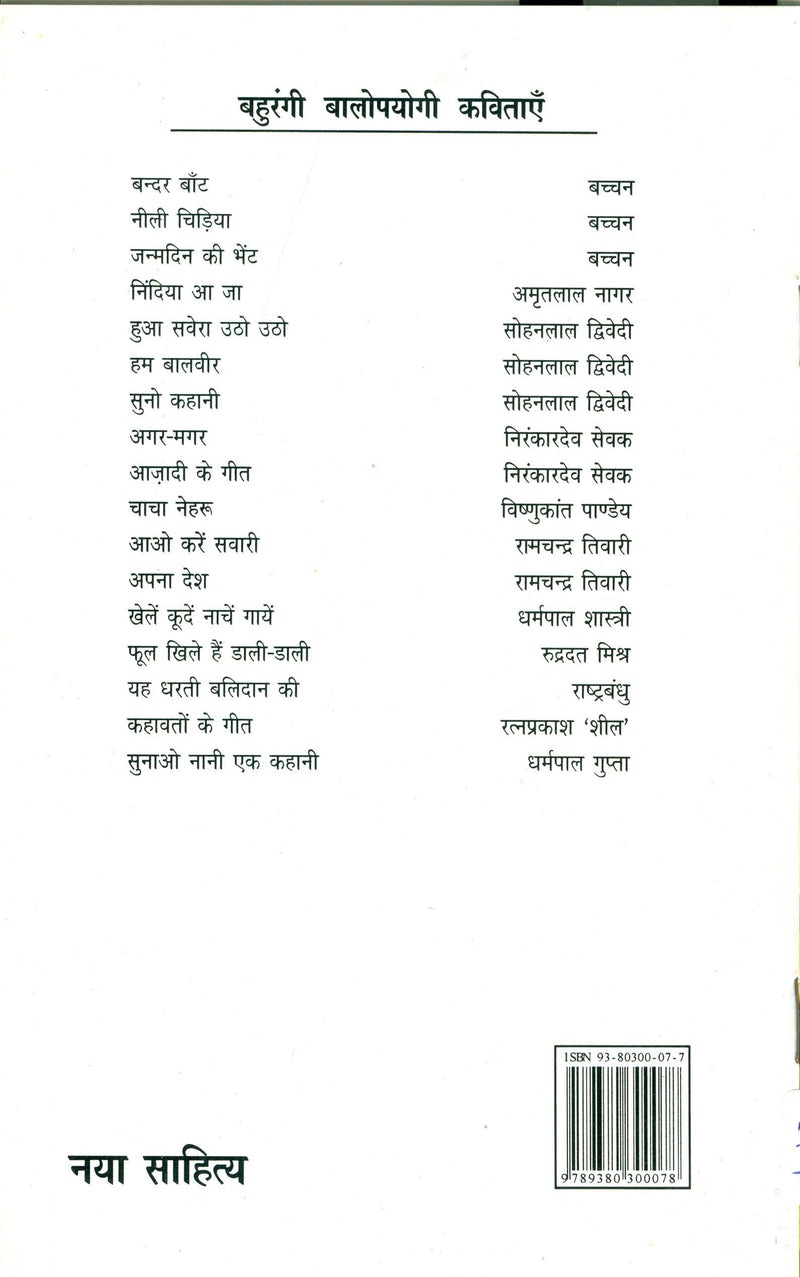 बहुरंगी बालोपयोगी कविताएँ
बन्दर बाँट बच्चन
नीली चिड़िया बच्चन
जन्मदिन की भेंट बच्चन
निंदिया आ जा अमृतलाल नागर
हुआ सवेरा उठो उठो सोहनलाल द्विवेदी
हम बालवीर सोहनलाल द्विवेदी
सुनो कहानी सोहनलाल द्विवेदी
अगर-मगर निरंकारदेव सेवक
आज़ादी के गीत निरंकारदेव सेवक
चाचा नेहरू विष्णुकांत पाण्डेय
आओ करें सवारी रामचन्द्र तिवारी
अपना देश रामचन्द्र तिवारी
खेलें कूदें नाचें गायें धर्मपाल शास्त्री
फूल खिले हैं डाली-डाली रुद्रदत मिश्र
यह धरती बलिदान की राष्ट्रबंधु
कहावतों के गीत रत्नप्रकाश ‘शील’
सुनाओ नानी एक कहानी धर्मपाल गुप्ता
ISBN 93-80300-07-7
9 789380 300078
नया साहित्य